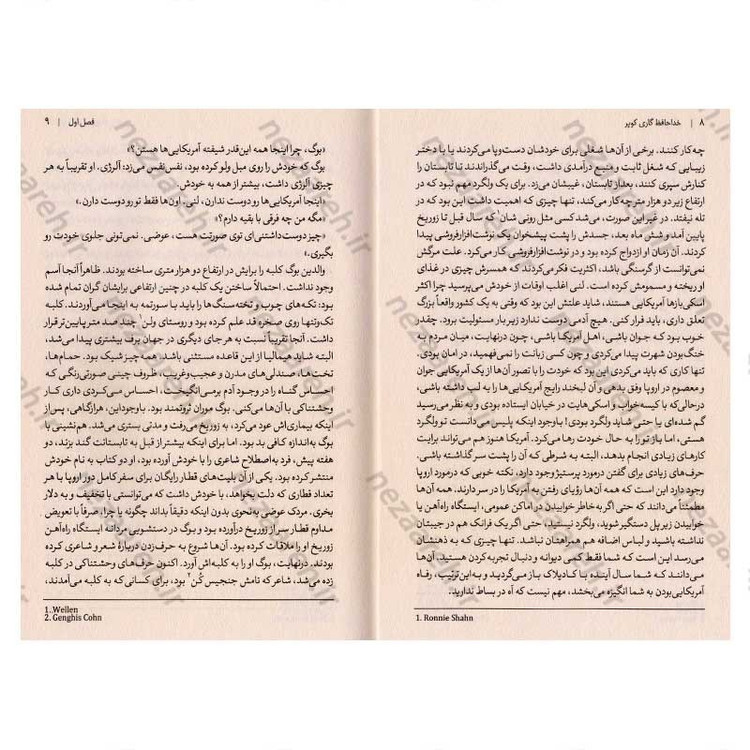 ۸ | خداحافظ گاری کوپر
چه‌کار کنند. برخی از آن‌ها شغلی برای خودشان دست‌وپا می‌کردند یا با دختر
زیبایی که شغل ثابت و منبع درآمدی داشت، وقت می‌گذراندند تا تابستان را
کنارش سپری کنند، بعداز تابستان، غیبشان می‌زد. برای یک ولگرد مهم نبود که در
ارتفاع زیر دو هزار متر چه‌کار می‌کند، تنها چیزی که اهمیت داشت این بود که در
تله نیفتد. در غیر این صورت، می‌شد کسی مثل رونی شان¹ که سال قبل تا زوریخ
پایین آمد و شش ماه بعد، جسدش را پشت پیشخوان یک نوشت‌افزارفروشی پیدا
کردند. آن زمان او ازدواج کرده بود و در نوشت‌افزارفروشی کار می‌کرد. علت مرگش
نمی‌توانست از گرسنگی باشد، اکثریت فکر می‌کردند که همسرش چیزی در غذای
او ریخته و مسمومش کرده است. لنی اغلب اوقات از خودش می‌پرسید چرا اکثر
اسکی‌بازها آمریکایی هستند، شاید علتش این بود که وقتی به یک کشور واقعاً بزرگ
تعلق داری، باید فرار کنی. هیچ آدمی دوست ندارد زیر بار مسئولیت برود. چقدر
خوب بود که جوان باشی، اهل آمریکا باشی، چون درنهایت، میان مردم به
خنگ‌بودن شهرت پیدا می‌کردی و چون کسی زبانت را نمی‌فهمید، در امان بودی.
تنها کاری که باید می‌کردی این بود که خودت را با تصور آن‌ها از یک آمریکایی جوان
و معصوم در اروپا وفق بدهی و آن لبخند رایج آمریکایی‌ها را به لب داشته باشی،
درحالی‌که با کیسه‌خواب و اسکی‌هایت در خیابان ایستاده بودی و به نظر می‌رسید
گم شده‌ای یا حتی شاید ولگرد بودی! با وجود اینکه پلیس می‌دانست تو ولگرد
هستی، اما باز تو را به حال خودت رها می‌کرد. آمریکا هنوز هم می‌تواند برایت
کارهای زیادی انجام بدهد، البته به شرطی که آن را پشت سر گذاشته باشی.
حرف‌های زیادی برای گفتن درمورد پرستیژ وجود دارد، نکته خوبی که درمورد اروپا
وجود دارد این است که همه آن‌ها رؤیای رفتن به آمریکا را در سر دارند. همه آن‌ها
مطمئناً می‌دانند که حتی اگر به خاطر خوابیدن در اماکن عمومی، ایستگاه راه‌آهن یا
خوابیدن زیر پل دستگیر شوید، ولگرد نیستید، حتی اگر یک فرانک هم در جیبتان
نداشته باشید و لباس اضافه هم همراهتان نباشد. تنها چیزی که به ذهنشان
می‌رسد این است که شما فقط کمی دیوانه و دنبال تجربه‌کردن هستید. آن‌ها
می‌دانند که شما سال آینده با کادیلاک باز می‌گردید و به‌این‌ترتیب، رفاه
آمریکایی‌بودن به شما انگیزه می‌بخشد، مهم نیست که آه در بساط ندارید.
1. Ronnie Shahn
فصل اول | ۹
«بوگ، چرا اینجا همه این‌قدر شیفته آمریکایی‌ها هستن؟»
بوگ که خودش را روی مبل ولو کرده بود، نفس‌نفس می‌زد: آلرژی. او تقریباً به هر
چیزی آلرژی داشت، بیشتر از همه به خودش.
«اینجا آمریکایی‌ها رو دوست ندارن، لنی. اون‌ها فقط تو رو دوست دارن.»
«مگه من چه فرقی با بقیه دارم؟»
«چیز دوست‌داشتنی‌ای توی صورتت هست، عوضی. نمی‌تونی جلوی خودت رو
بگیری.»
والدین بوگ کلبه را برایش در ارتفاع دو هزار متری ساخته بودند. ظاهراً آنجا آسم
وجود نداشت. احتمالاً ساختن یک کلبه در چنین ارتفاعی برایشان گران تمام شده
بود: تکه‌های چوب و تخته‌سنگ‌ها را باید با سورتمه به اینجا می‌آوردند. کلبه
تک‌وتنها روی صخره قد علم کرده بود و روستای ولن¹ چند صد متر پایین‌تر قرار
داشت. آنجا تقریباً نسبت به هر جای دیگری در جهان برف بیشتری پیدا می‌شد،
البته شاید هیمالیا از این قاعده مستثنی باشد. همه چیز شیک بود. حمام‌ها،
تخت‌ها، صندلی‌های مدرن و عجیب‌وغریب، ظروف چینی صورتی‌رنگی که
احساس گناه را در وجود آدم برمی‌انگیخت، احساس می‌کردی داری کار
وحشتناکی با آن‌ها می‌کنی. بوگ موران ثروتمند بود. باوجوداین، هرازگاهی، پس‌از
اینکه بیماری‌اش عود می‌کرد، به زوریخ می‌رفت و مدتی بستری می‌شد. هم‌نشینی با
بوگ به‌اندازه کافی بد بود. اما برای اینکه بیشتر از قبل به تابستانت گند بزند، دو
هفته پیش، فرد به‌اصطلاح شاعری را با خودش آورده بود، او دو کتاب به نام خودش
منتشر کرده بود. یکی از آن بلیت‌های قطار رایگان برای سفر کامل دور اروپا با هر
تعداد قطاری که دلت بخواهد، با خودش داشت که می‌توانستی با تخفیف و به دلار
بخری. مردک عوضی به‌نحوی بدون اینکه دقیقاً بداند چگونه یا چرا، صرفاً با تعویض
مداوم قطار سر از زوریخ درآورده بود و بوگ در دستشویی مردانه ایستگاه راه‌آهن
زوریخ او را ملاقات کرده بود. آن‌ها شروع به حرف‌زدن درباره شعر و شاعری کرده
بودند. درنهایت، بوگ او را به کلبه‌اش آورد. اکنون حرف‌های وحشتناکی در کلبه
زده می‌شد، شاعر که نامش جنجیس کُن² بود، برای کسانی‌که به کلبه می‌آمدند،
1. Wellen
2. Genghis Cohn
nezareh.ir